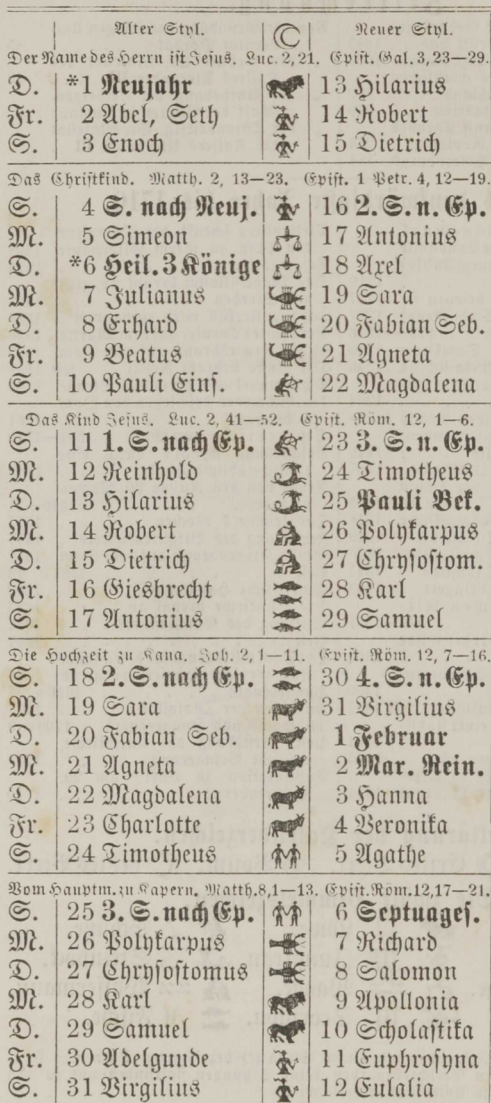 Alter Styl. Neuer Styl.
Der Name des Herrn ist Jesus. Luc. 2, 21. Epist. Gal. 3, 23—29.
D. *1 Neujahr 13 Hilarius
Fr. 2 Abel, Seth 14 Robert
S. 3 Enoch 15 Dietrich
Das Christkind. Matth. 2, 13—23. Epist. 1 Petr. 4, 12—19.
S. 4 S. nach Neuj. 16 2. S. n. Ep.
M. 5 Simeon 17 Antonius
D. *6 Heil. 3 Könige 18 Axel
M. 7 Julianus 19 Sara
D. 8 Erhard 20 Fabian Seb.
Fr. 9 Beatus 21 Agneta
S. 10 Pauli Eins. 22 Magdalena
Das Kind Jesus. Luc. 2, 41—52. Epist. Röm. 12, 1—6.
S. 11 1. S. nach Ep. 23 3. S. n. Ep.
M. 12 Reinhold 24 Timotheus
D. 13 Hilarius 25 Pauli Bek.
M. 14 Robert 26 Polykarpus
D. 15 Dietrich 27 Chrysostom.
Fr. 16 Giesbrecht 28 Karl
S. 17 Antonius 29 Samuel
Die Hochzeit zu Kana. Joh. 2, 1—11. Epist. Röm. 12, 7—16.
S. 18 2. S. nach Ep. 30 4. S. n. Ep.
M. 19 Sara 31 Virgilius
D. 20 Fabian Seb. 1 Februar
M. 21 Agneta 2 Mar. Rein.
D. 22 Magdalena 3 Hanna
Fr. 23 Charlotte 4 Veronika
S. 24 Timotheus 5 Agathe
Vom Hauptm. zu Kapern. Matth. 8, 1—13. Epist. Röm. 12, 17—21.
S. 25 3. S. nach Ep. 6 Septuages.
M. 26 Polykarpus 7 Richard
D. 27 Chrysostomus 8 Salomon
M. 28 Karl 9 Apollonia
D. 29 Samuel 10 Scholastika
Fr. 30 Adelgunde 11 Euphrosyna
S. 31 Virgilius 12 Eulalia